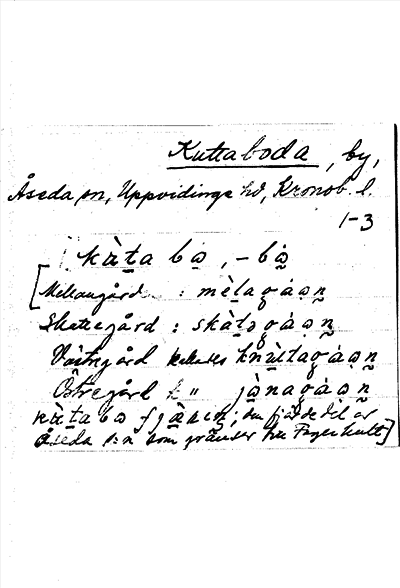 Kuttaboda, by,
Åseda sn, Uppvidinge hd, Kronob. l.
1-3
kùta bo, -bo
[Mellangård : mèlagåan
Skattegård : skàtəgåan
Västregård kallades knùltagåan
Östregård k " jònagåan
kùta bo fjàɹen; den fjärde del av
Åseda s:n som gränsar till Fagerhult]